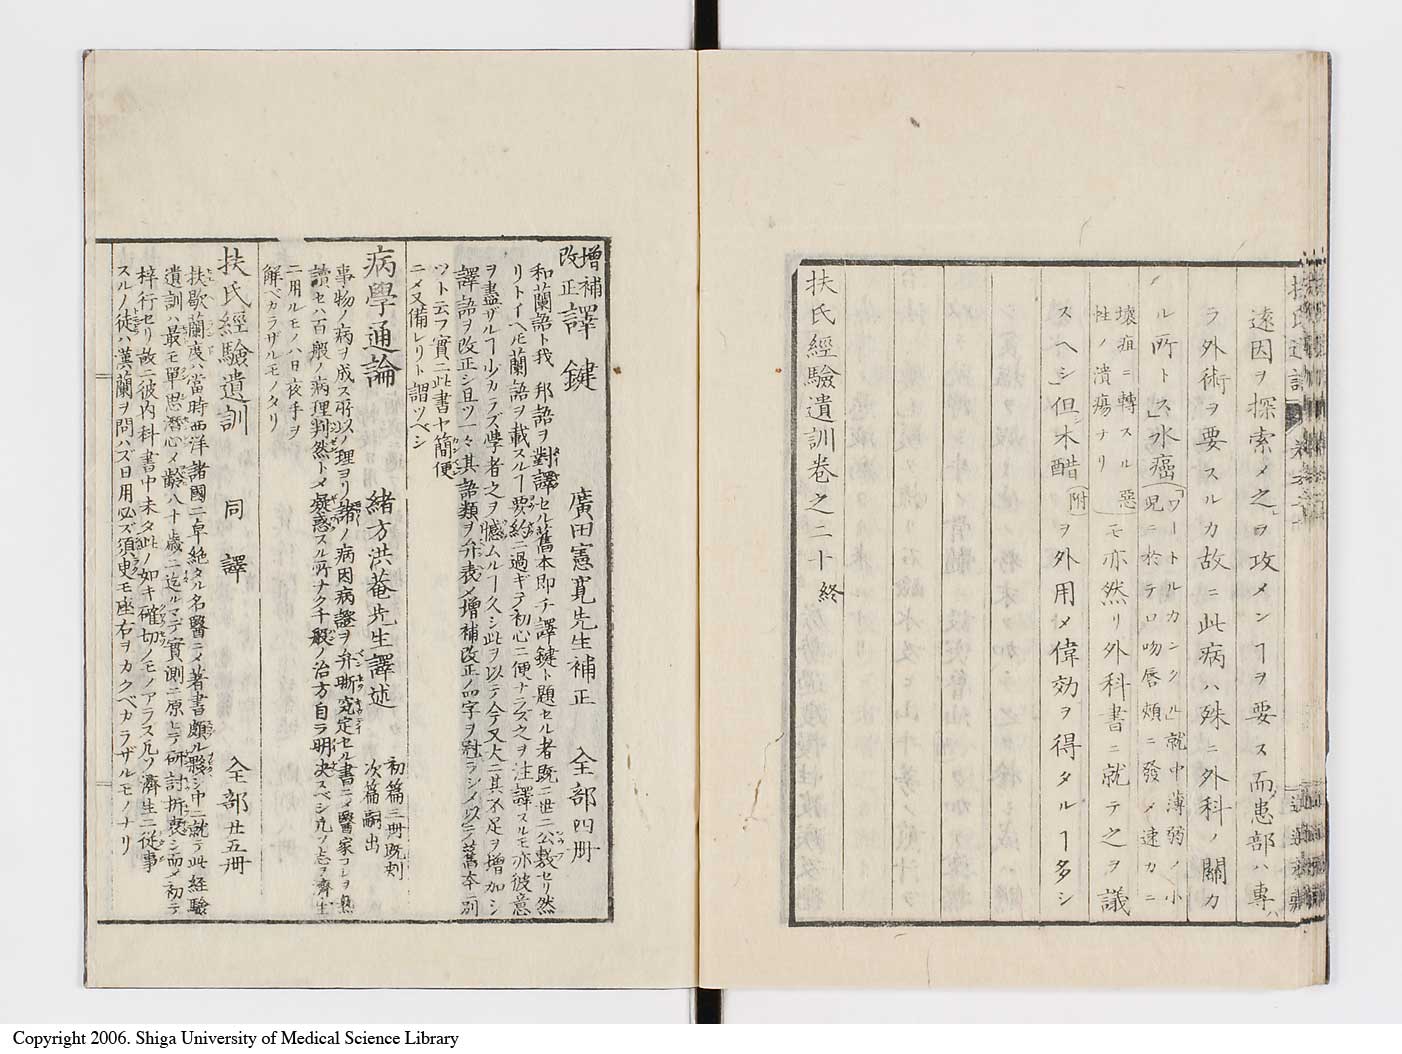 遠因ヲ探索メ之ヲ攻メンヿヲ要ス而患部ハ專
ラ外術ヲ要スルカ故ニ此病ハ殊ニ外科ノ關カ
ル所トス」水癌(「ワートルカンクル」就中薄弱ノ小
兒ニ於テ口吻唇頰ニ發メ速カニ
壞疽ニ轉スル惡
性ノ潰瘍ナリ)モ亦然リ外科書ニ就テ之ヲ議
スヘシ」但シ木醋(附)ヲ外用メ偉効ヲ得タルヿ多シ
扶氏經驗遺訓卷之二十終
增補
改正
譯鍵
廣田憲寛先生補正
全部四册
和蘭語ト我 邦語ヲ對譯セル舊本即チ譯鍵ト題セル者既ニ世ニ公敷セリ然
リトイヘ𪜈蘭語ヲ載スルヿ要約ニ過ギテ初心ニ便ナラズ之ヲ注譯スルモ亦彼意
ヲ盡ザルヿ少カラズ學者之ヲ憾ムルヿ久シ此ヲ以テ今又大ニ其不足ヲ增加シ
譯語ヲ改正シ且ツ一々其語類ヲ弁表メ增補改正ノ四字ヲ冠ラシメ以テ舊本ニ別
ツト云フ實ニ此書ヤ簡便
ニメ又備レリト謂ツベシ
病學通論
緒方洪菴先生譯述
初篇三册既刻
次篇嗣出
事物ノ病ヲ成ス所以ノ理ヨリ諸ノ病因病證ヲ弁晣究定セル書ニメ醫家コレヲ熟
讀セハ百般ノ病理判然トメ疑惑スル所ナク千般ノ治方自ラ明決スベシ凡ソ志ヲ濟生
ニ用ルモノハ日夜手ヲ
解ベカラザルモノタリ
扶氏經驗遺訓
同譯
全部廿五册
扶歇蘭度ハ當時西洋諸國ニ卓絶タル名醫ニメ著書頗ル夥シ中ニ就テ此經驗
遺訓ハ最モ單思潛心メ齡八十歲ニ迄ルマデ實測ニ原ヒテ研討折衷シ而メ初テ
梓行セリ故ニ彼内科書中未タ此ノ如キ確切ノモノアラス凡ソ濟生ニ從事
スルノ徒ハ漢蘭ヲ問ハズ日用必ズ須臾モ座右ヲカクベカラザルモノナリ
Copyright 2006. Shiga University of Medical Science Library